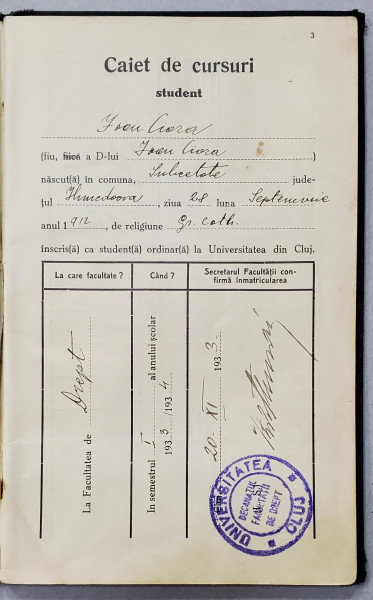 3
Caiet de cursuri
student
Ioan Ciora
(fiu, fiică a D-lui Ioan Ciora )
născut(ă) în comuna, Subcetate jude-
țul Hunedoara, ziua 28 luna Septemvrie
anul 1912, de religiune Gr. cath.
înscris(ă) ca student(ă) ordinar(ă) la Universitatea din Cluj.
La care facultate ?
Când ?
Secretarul Facultății con-
firmă inmatricularea
La Facultatea de Drept
In semestrul I al anului școlar
1933/1934
20 XI 1933
UNIVERSITATEA CLUJ
DECANATUL
FACULTĂȚII
DE DREPT